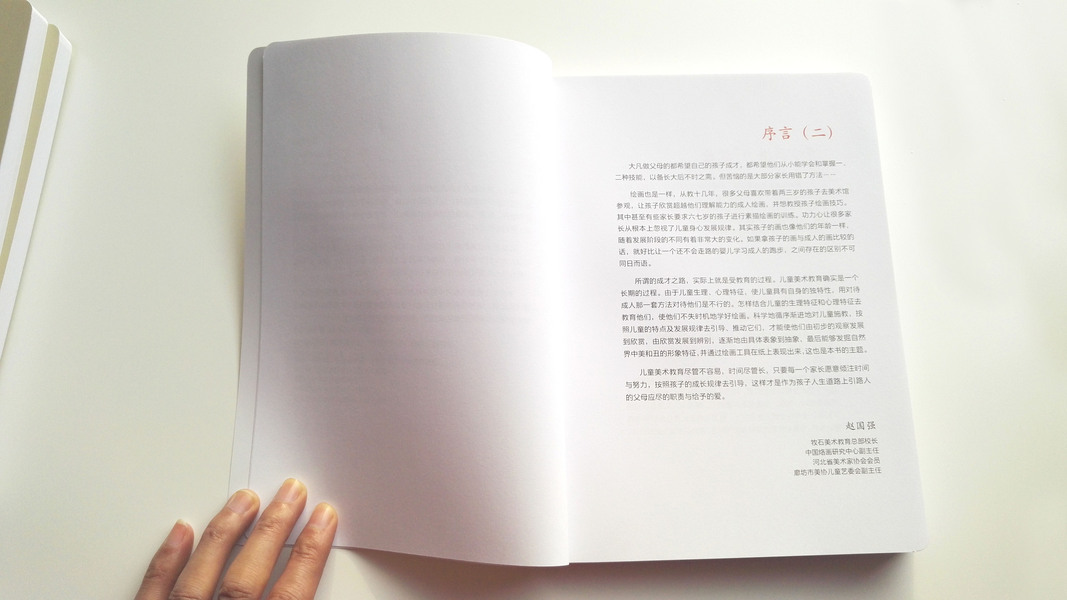 序言（二）
大凡做父母的都希望自己的孩子成才，都希望他们从小能学会和掌握一、
二种技能，以备长大后不时之需。但苦恼的是大部分家长用错了方法……
绘画也是一样，从教十几年，很多父母喜欢带着两三岁的孩子去美术馆
参观，让孩子欣赏超越他们理解能力的成人绘画，并想教授孩子绘画技巧。
其中甚至有些家长要求六七岁的孩子进行素描绘画的训练。功力心让很多家
长从根本上忽视了儿童身心发展规律。其实孩子的画也像他们的年龄一样，
随着发展阶段的不同有着非常大的变化。如果拿孩子的画与成人的画比较的
话，就好比让一个还不会走路的婴儿学习成人的跑步，之间存在的区别不可
同日而语。
所谓的成才之路，实际上就是受教育的过程。儿童美术教育确实是一个
长期的过程。由于儿童生理、心理特征，使儿童具有自身的独特性，用对待
成人那一套方法对待他们是不行的。怎样结合儿童的生理特征和心理特征去
教育他们，使他们不失时机地学好绘画。科学地循序渐进地对儿童施教，按
照儿童的特点及发展规律去引导、推动它们，才能使他们由初步的观察发展
到欣赏，由欣赏发展到辨别，逐渐地由具体表象到抽象，最后能够发掘自然
界中美和丑的形象特征，并通过绘画工具在纸上表现出来，这也是本书的主题。
儿童美术教育尽管不容易，时间尽管长，只要每一个家长愿意倾注时间
与努力，按照孩子的成长规律去引导，这样才是作为孩子人生道路上引路人
的父母应尽的职责与给予的爱。
赵国强
牧石美术教育总部校长
中国烙画研究中心副主任
河北省美术家协会会员
廊坊市美协儿童艺委会副主任